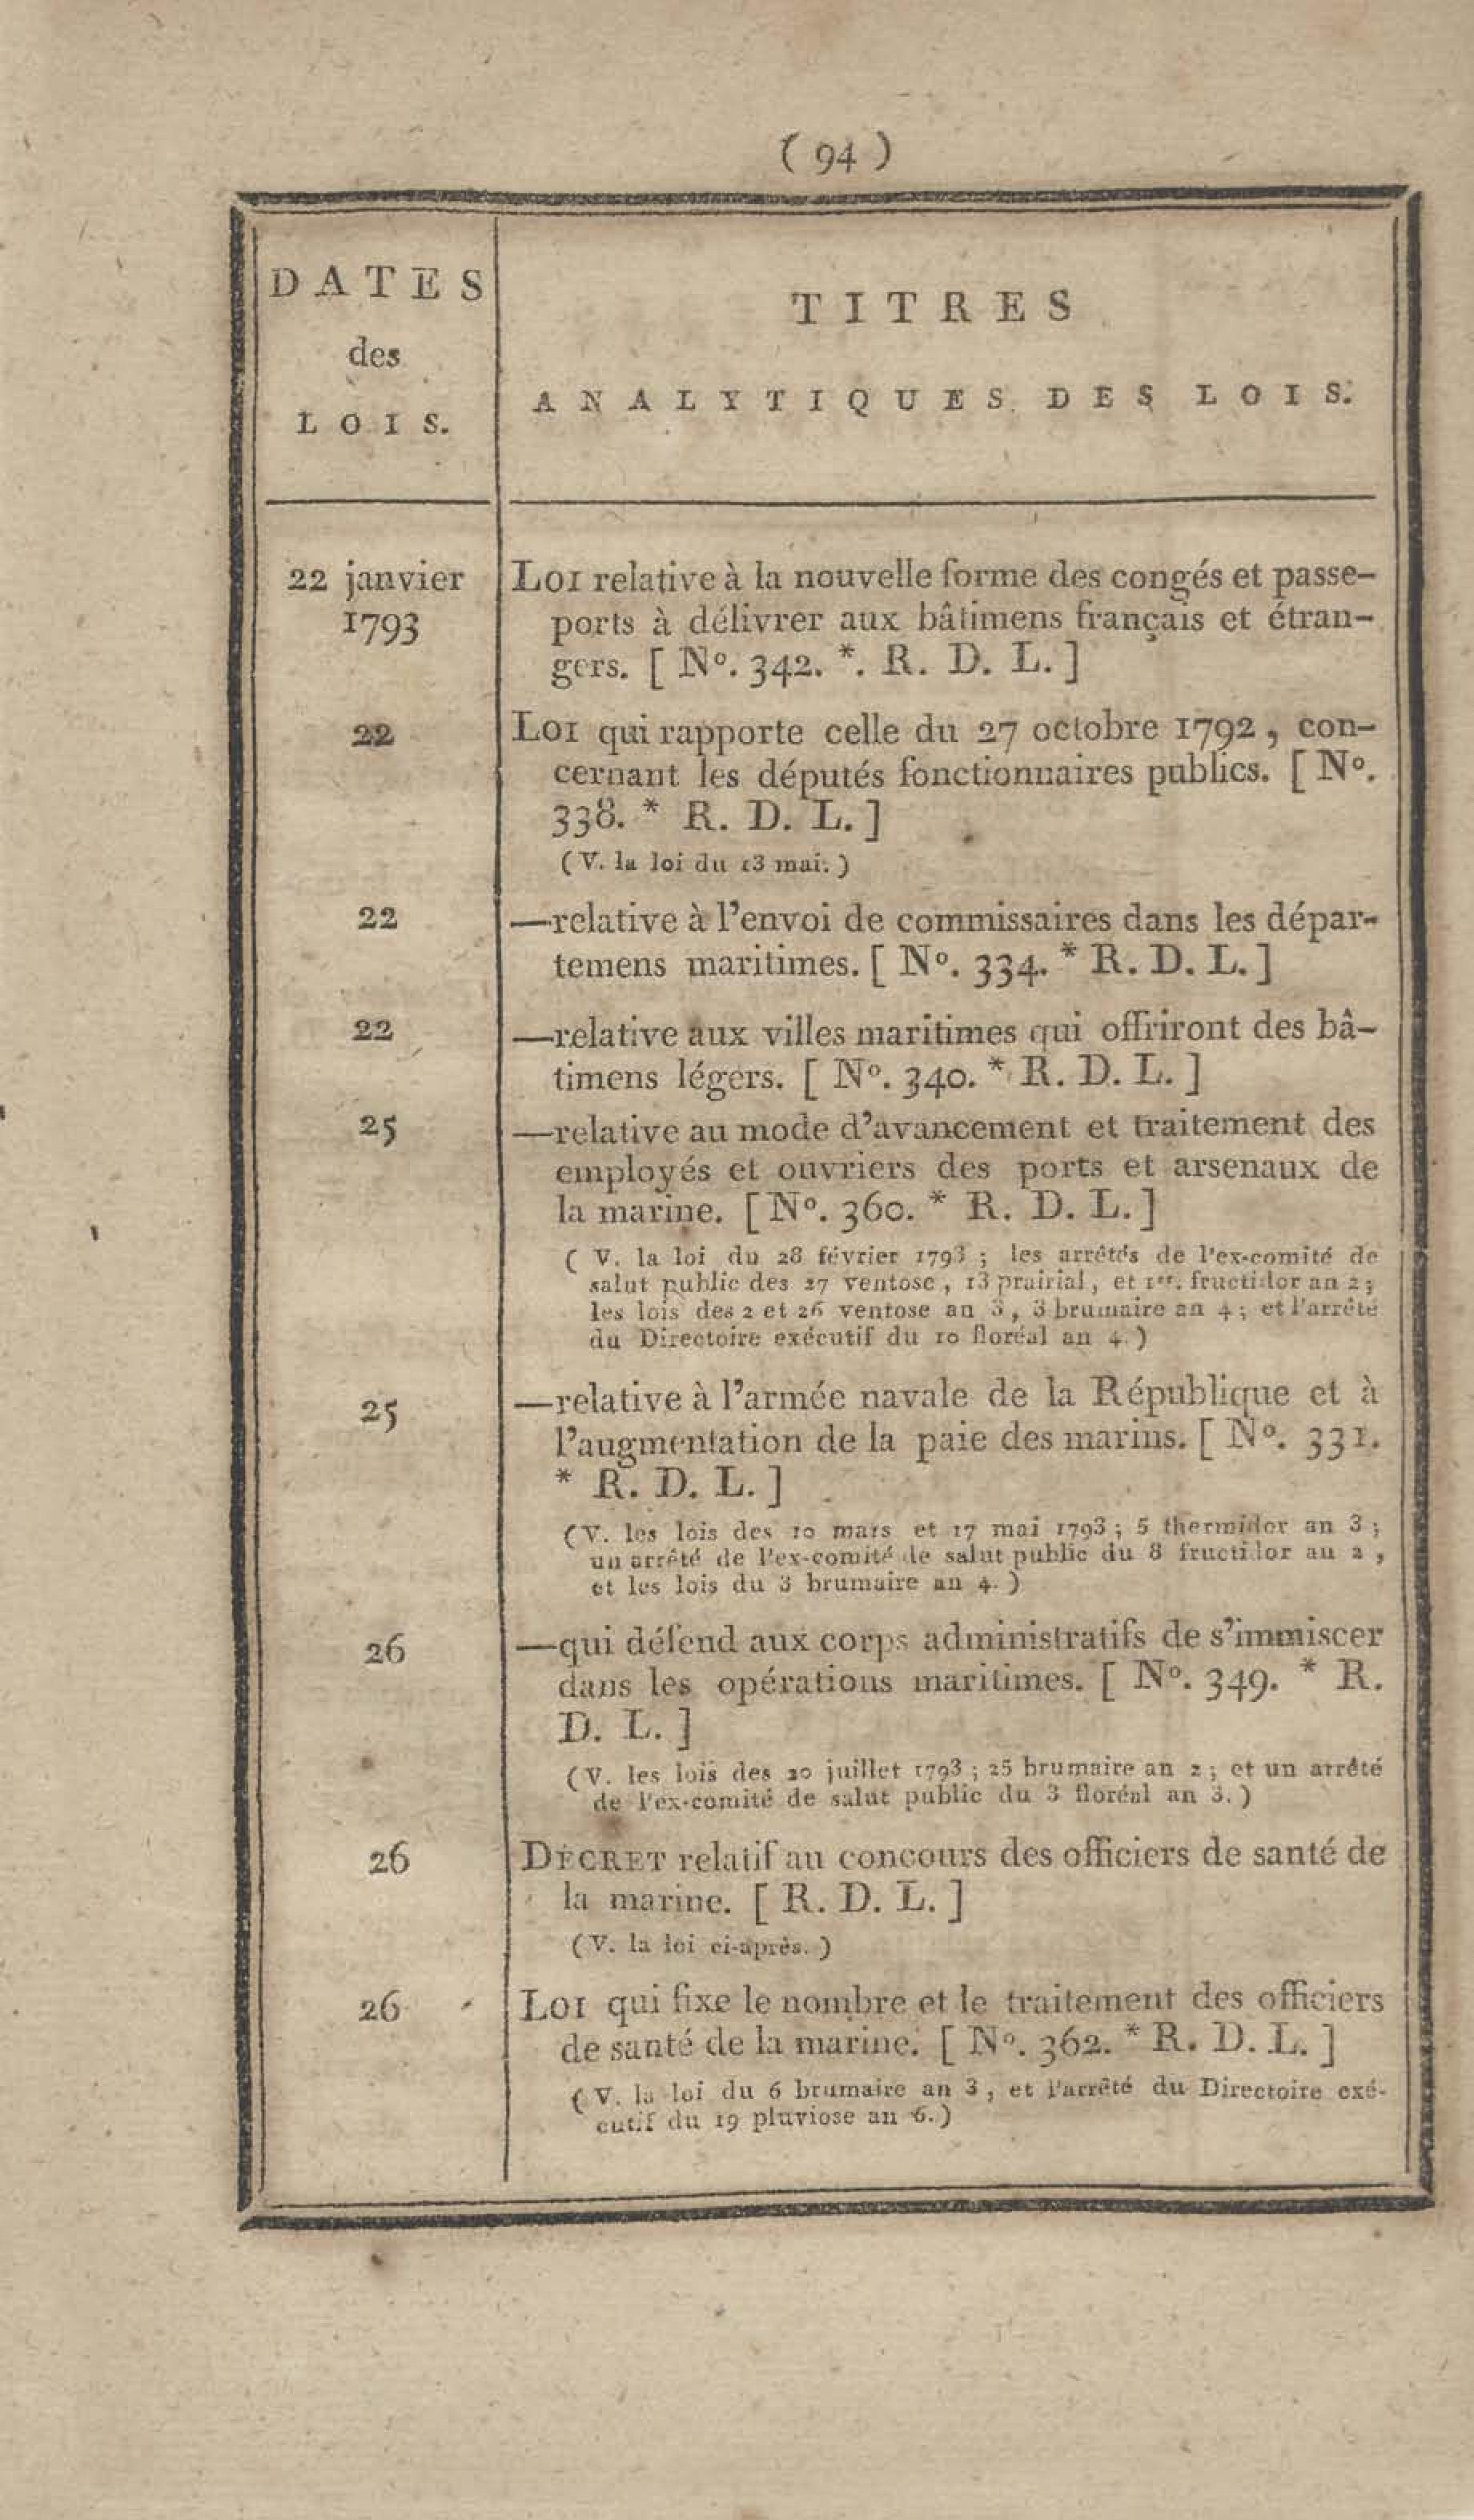 ( 94 )
DATES
des
LOIS.
TITRES
ANALYTIQUES DES LOIS.
22 janvier
1793
LOI relative à la nouvelle forme des congés et passe-
ports à délivrer aux bâtimens français et étran-
gers. [ Nº. 342. *. R. D. L. ]
22
LOI qui rapporte celle du 27 octobre 1792, con-
cernant les députés fonctionnaires publics. [ Nº.
338. * R. D. L. ]
( V. la loi du 13 mai. )
22
—relative à l'envoi de commissaires dans les dépar-
temens maritimes. [ Nº. 334. * R. D. L. ]
22
—relative aux villes maritimes qui offriront des bâ-
timens légers. [ Nº. 340. * R. D. L. ]
25
—relative au mode d'avancement et traitement des
employés et ouvriers des ports et arsenaux de
la marine. [ Nº. 360. * R. D. L. ]
( V. la loi du 28 février 1793 ; les arrêtés de l'ex-comité de
salut public des 27 ventose, 13 prairial, et 1er. fructidor an 2 ;
les lois des 2 et 26 ventose an 3, 3 brumaire an 4 ; et l'arrêté
du Directoire exécutif du 10 floréal an 4. )
25
—relative à l'armée navale de la République et à
l'augmentation de la paie des marins. [ Nº. 331.
* R. D. L. ]
( V. les lois des 10 mars et 17 mai 1793 ; 5 thermidor an 3 ;
un arrêté de l'ex-comité de salut public du 8 fructidor an 2 ,
et les lois du 3 brumaire an 4. )
26
—qui défend aux corps administratifs de s'immiscer
dans les opérations maritimes. [ Nº. 349. * R.
D. L. ]
( V. les lois des 20 juillet 1793 ; 25 brumaire an 2 ; et un arrêté
de l'ex-comité de salut public du 3 floréal an 3. )
26
DÉCRET relatif au concours des officiers de santé de
la marine. [ R. D. L. ]
( V. la loi ci-après. )
26
LOI qui fixe le nombre et le traitement des officiers
de santé de la marine. [ Nº. 362. * R. D. L. ]
( V. la loi du 6 brumaire an 3, et l'arrêté du Directoire exé-
cutif du 19 pluviose an 6. )